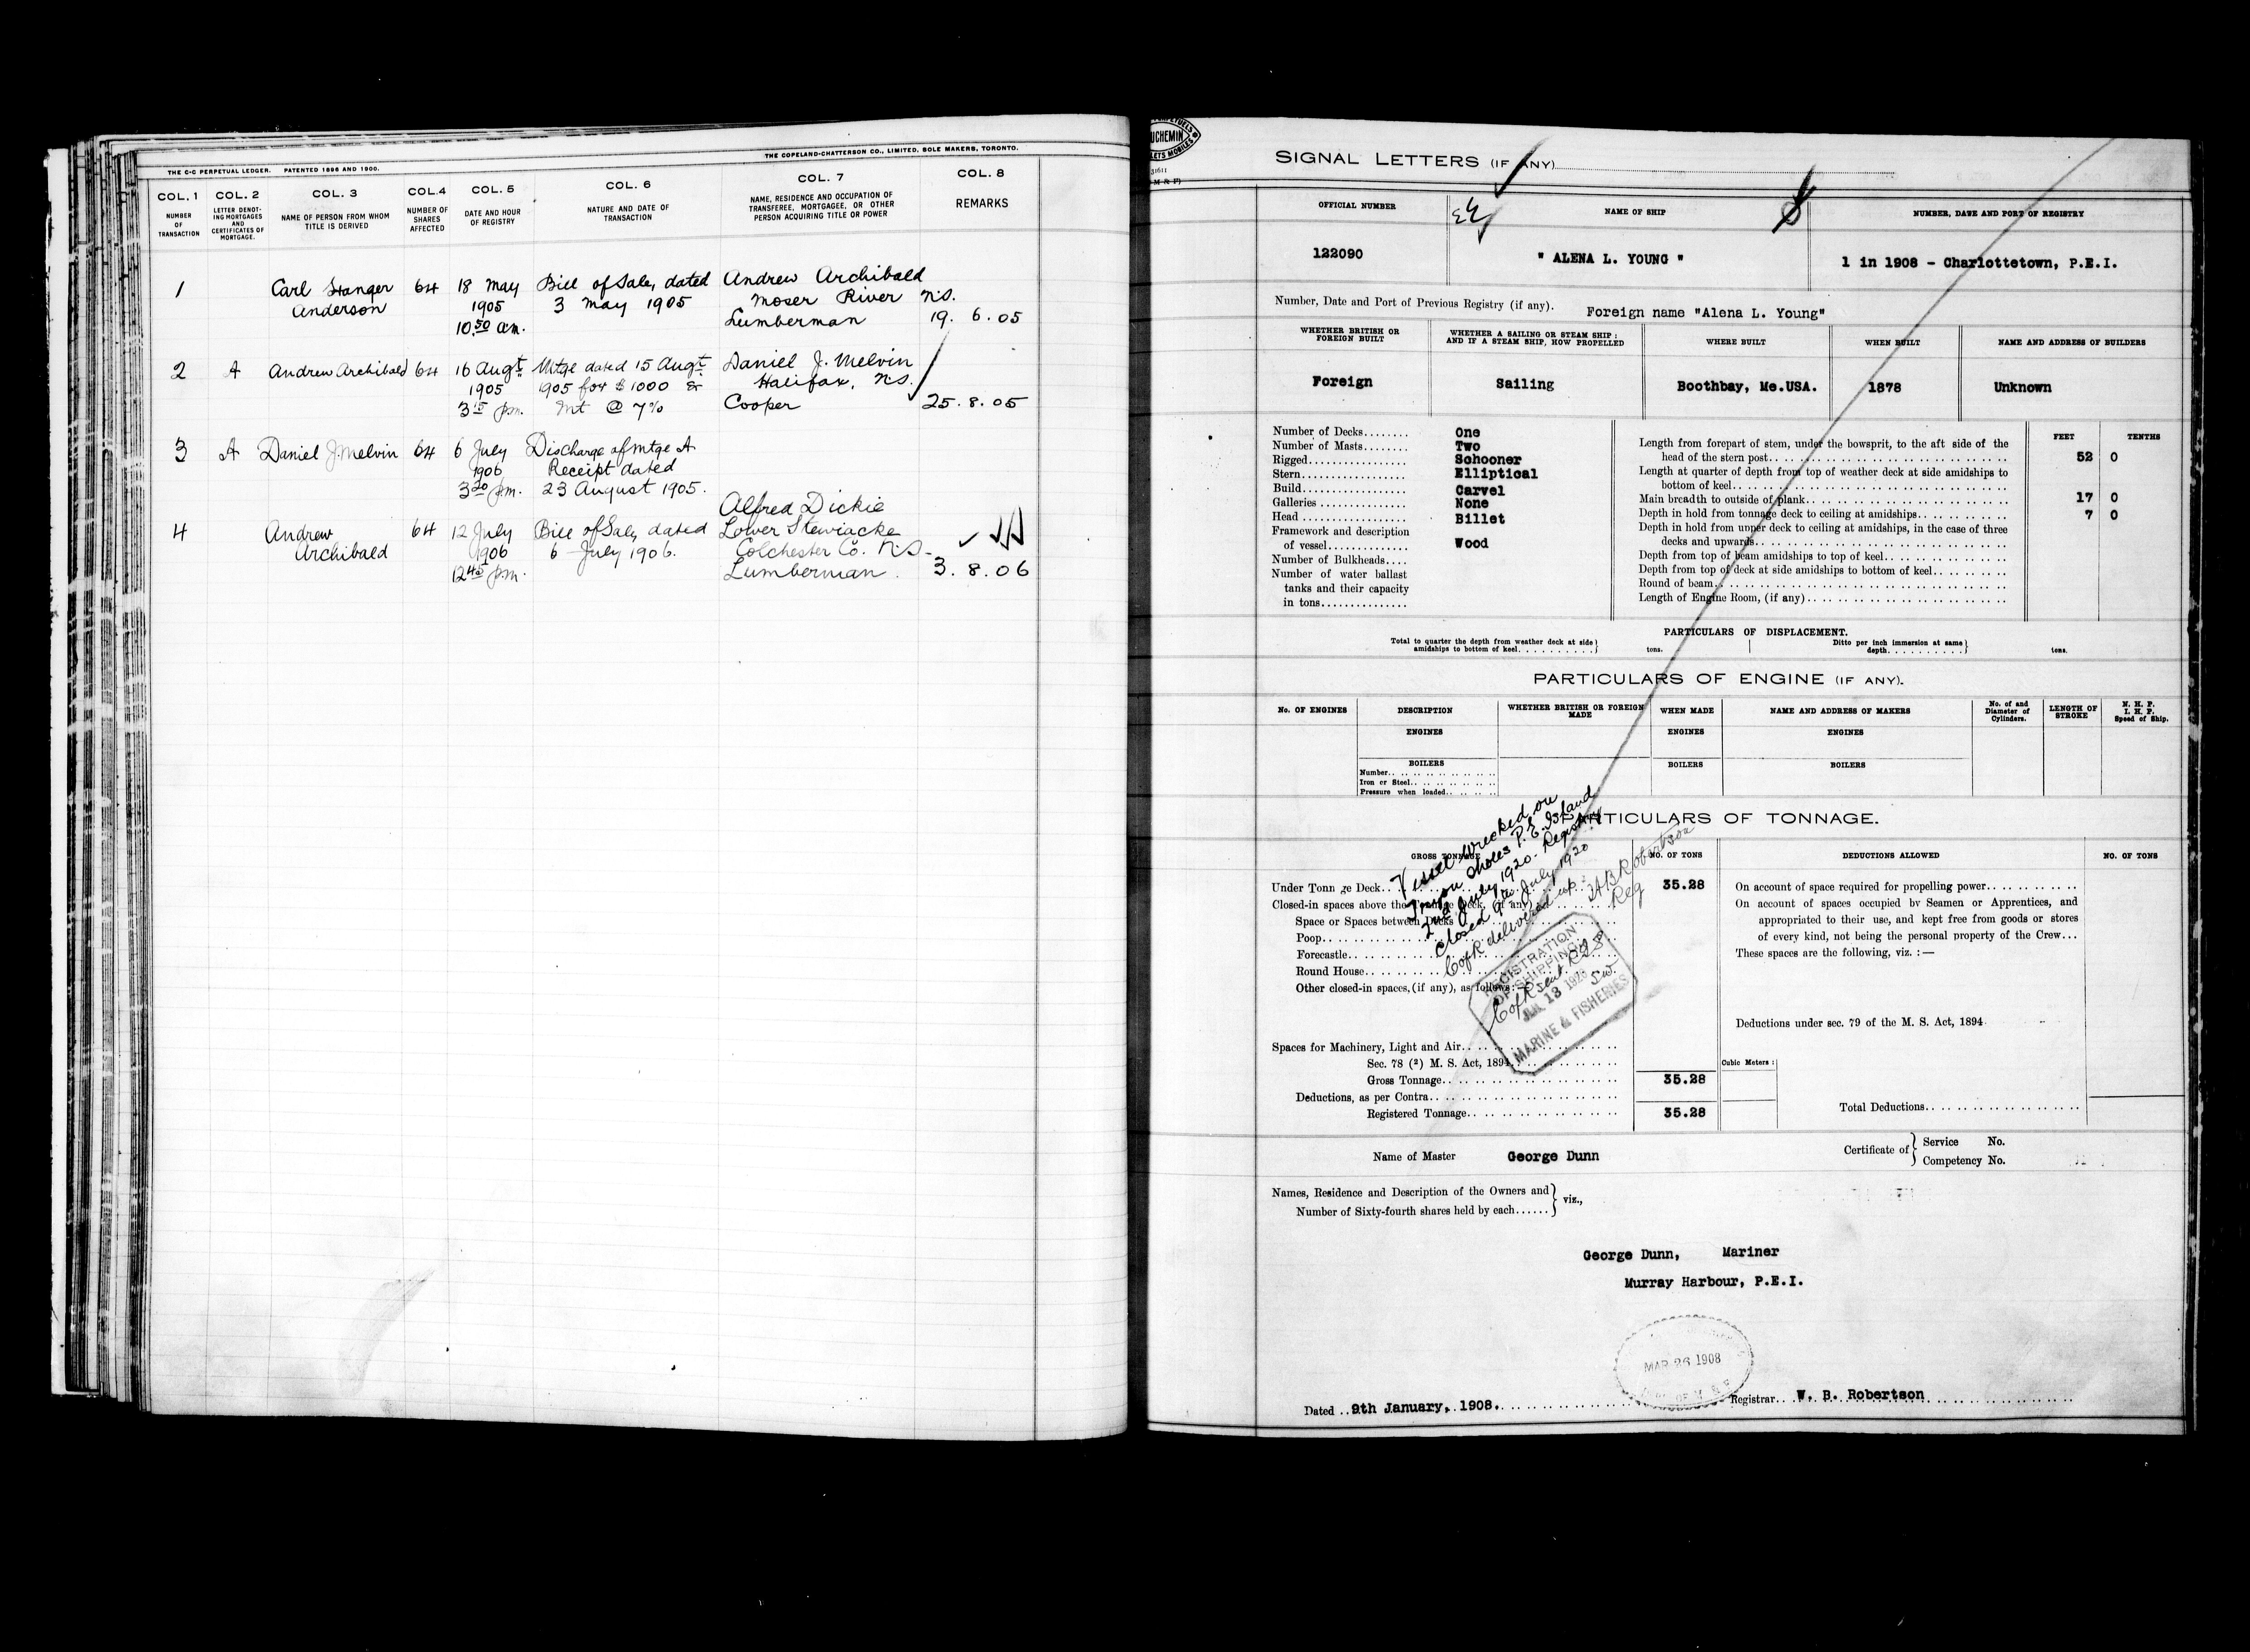 THE C-C PERPETUAL LEDGER. PATENTED 1896 AND 1900.
THE COPELAND-CHATTERSON CO., LIMITED, SOLE MAKERS, TORONTO.
COL. 1 COL. 2 COL. 3 COL. 4 COL. 5 COL. 6 COL. 7 COL. 8
NUMBER OF TRANSACTION
LETTER DENOT-ING MORTGAGES AND CERTIFICATES OF MORTGAGE.
NAME OF PERSON FROM WHOM TITLE IS DERIVED
NUMBER OF SHARES AFFECTED
DATE AND HOUR OF REGISTRY
NATURE AND DATE OF TRANSACTION
NAME, RESIDENCE AND OCCUPATION OF TRANSFEREE, MORTGAGEE, OR OTHER PERSON ACQUIRING TITLE OR POWER
REMARKS
1 Carl Stanger 64 18 May Bill of Sale, dated Andrew Archibald
Anderson 1905 3 May 1905 Moser River N.S.
10.50 am. Lumberman 19. 6. 05
2 A Andrew Archibald 64 16 Augt Mtge dated 15 Augt Daniel J. Melvin
1905 1905 for $1000 & Halifax, N.S.
3 15 pm. Int @ 7% Cooper 25. 8. 05
3 A Daniel J. Melvin 64 6 July Discharge of Mtge A
1906 Receipt dated
3 20 pm. 23 August 1905.
Alfred Dickie
4 Andrew 64 12 July Bill of Sale, dated Lower Stewiacke
Archibald 1906 6 July 1906. Colchester Co. N.S.
12 45 pm. Lumberman. 3. 8. 06
UCHEMIN
SIGNAL LETTERS (IF ANY)
OFFICIAL NUMBER NAME OF SHIP NUMBER, DATE AND PORT OF REGISTRY
122090 " ALENA L. YOUNG " 1 in 1908 - Charlottetown, P.E.I.
Number, Date and Port of Previous Registry (if any). Foreign name "Alena L. Young"
WHETHER BRITISH OR FOREIGN BUILT
WHETHER A SAILING OR STEAM SHIP : AND IF A STEAM SHIP, HOW PROPELLED
WHERE BUILT
WHEN BUILT
NAME AND ADDRESS OF BUILDERS
Foreign Sailing Boothbay, Me.USA. 1878 Unknown
Number of Decks........ One
Number of Masts........ Two
Rigged................ Schooner
Stern................. Elliptical
Build................. Carvel
Galleries............. None
Head ................. Billet
Framework and description
of vessel............. Wood
Number of Bulkheads....
Number of water ballast
tanks and their capacity
in tons...............
FEET TENTHS
Length from forepart of stem, under the bowsprit, to the aft side of the
head of the stern post.. 52 0
Length at quarter of depth from top of weather deck at side amidships to
bottom of keel..
Main breadth to outside of plank.. 17 0
Depth in hold from tonnage deck to ceiling at amidships.. 7 0
Depth in hold from upper deck to ceiling at amidships, in the case of three
decks and upwards..
Depth from top of beam amidships to top of keel..
Depth from top of deck at side amidships to bottom of keel..
Round of beam..
Length of Engine Room, (if any)..
PARTICULARS OF DISPLACEMENT.
Total to quarter the depth from weather deck at side
amidships to bottom of keel.......... tons.
Ditto per inch immersion at same
depth.......... tons.
PARTICULARS OF ENGINE (IF ANY).
No. OF ENGINES DESCRIPTION WHETHER BRITISH OR FOREIGN MADE WHEN MADE NAME AND ADDRESS OF MAKERS No. of and Diameter of Cylinders. LENGTH OF STROKE N. H. P. I. H. P. Speed of Ship.
ENGINES ENGINES ENGINES
BOILERS BOILERS BOILERS
Number..
Iron or Steel..
Pressure when loaded..
PARTICULARS OF TONNAGE.
Vessel wrecked on
Tryon Sholes P.E. Island
2nd July 1920. Registry
closed 9th July 1920
C of R delivered up.
Reg
GROSS TONNAGE NO. OF TONS DEDUCTIONS ALLOWED NO. OF TONS
Under Tonn ge Deck.. 35.28
Closed-in spaces above the Tonnage Deck, (if any)
Space or Spaces between Decks
Poop..
Forecastle..
Round House..
Other closed-in spaces, (if any), as follows:
Spaces for Machinery, Light and Air..
Sec. 78 (2) M. S. Act, 1894
Gross Tonnage.. 35.28
Deductions, as per Contra..
Registered Tonnage.. 35.28
REGISTRATION
OF SHIPPING
JUL 13 1920
MARINE & FISHERIES
On account of space required for propelling power..
On account of spaces occupied by Seamen or Apprentices, and
appropriated to their use, and kept free from goods or stores
of every kind, not being the personal property of the Crew...
These spaces are the following, viz. :—
Deductions under sec. 79 of the M. S. Act, 1894
Cubic Meters :
Total Deductions..
Name of Master George Dunn
Certificate of Service No.
Competency No.
Names, Residence and Description of the Owners and
Number of Sixty-fourth shares held by each...... viz.,
George Dunn, Mariner
Murray Harbour, P.E.I.
MAR 26 1908
Dated ..9th January, 1908.
Registrar.. W. B. Robertson